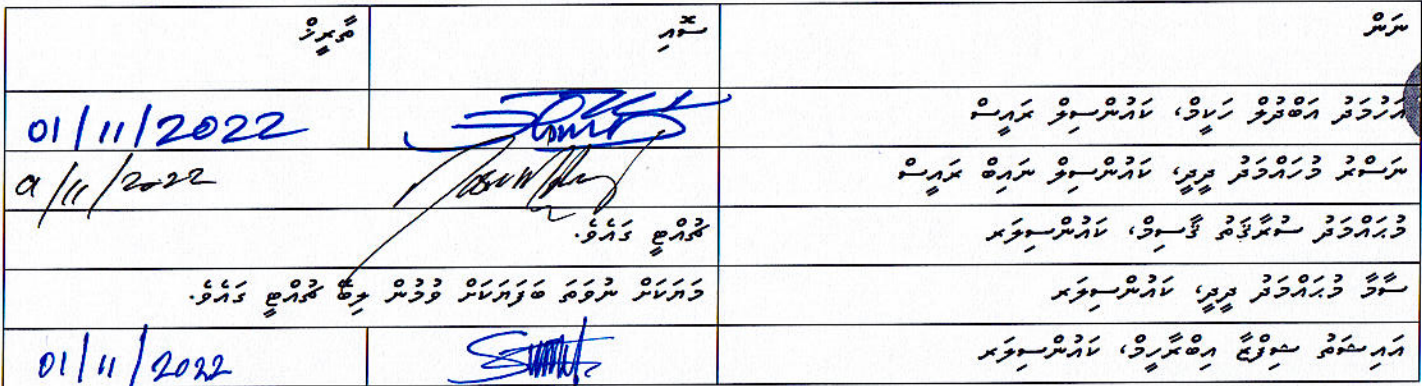 ނަން ސޮއި ތާރީޚް
އަހުމަދު އަބްދުލް ހަކީމް، ކައުންސިލް ރައީސް 01/11/2022
ނަސްރު މުހައްމަދު ދީދީ، ކައުންސިލް ނައިބް ރައީސް
މުޙައްމަދު ސުރާޤަތު ޤާސިމް، ކައުންސިލަރ ޗުއްޓީ ގައެވެ.
ސާމާ މުޙައްމަދު ދީދީ، ކައުންސިލަރ މަޔަކަށް ނުވަތަ ބަފަޔަކަށް ވުމުން ލިބޭ ޗުއްޓީ ގައެވެ.
އައިޝަތު ޝިފްޒާ އިބްރާހީމް، ކައުންސިލަރ 01/11/2022